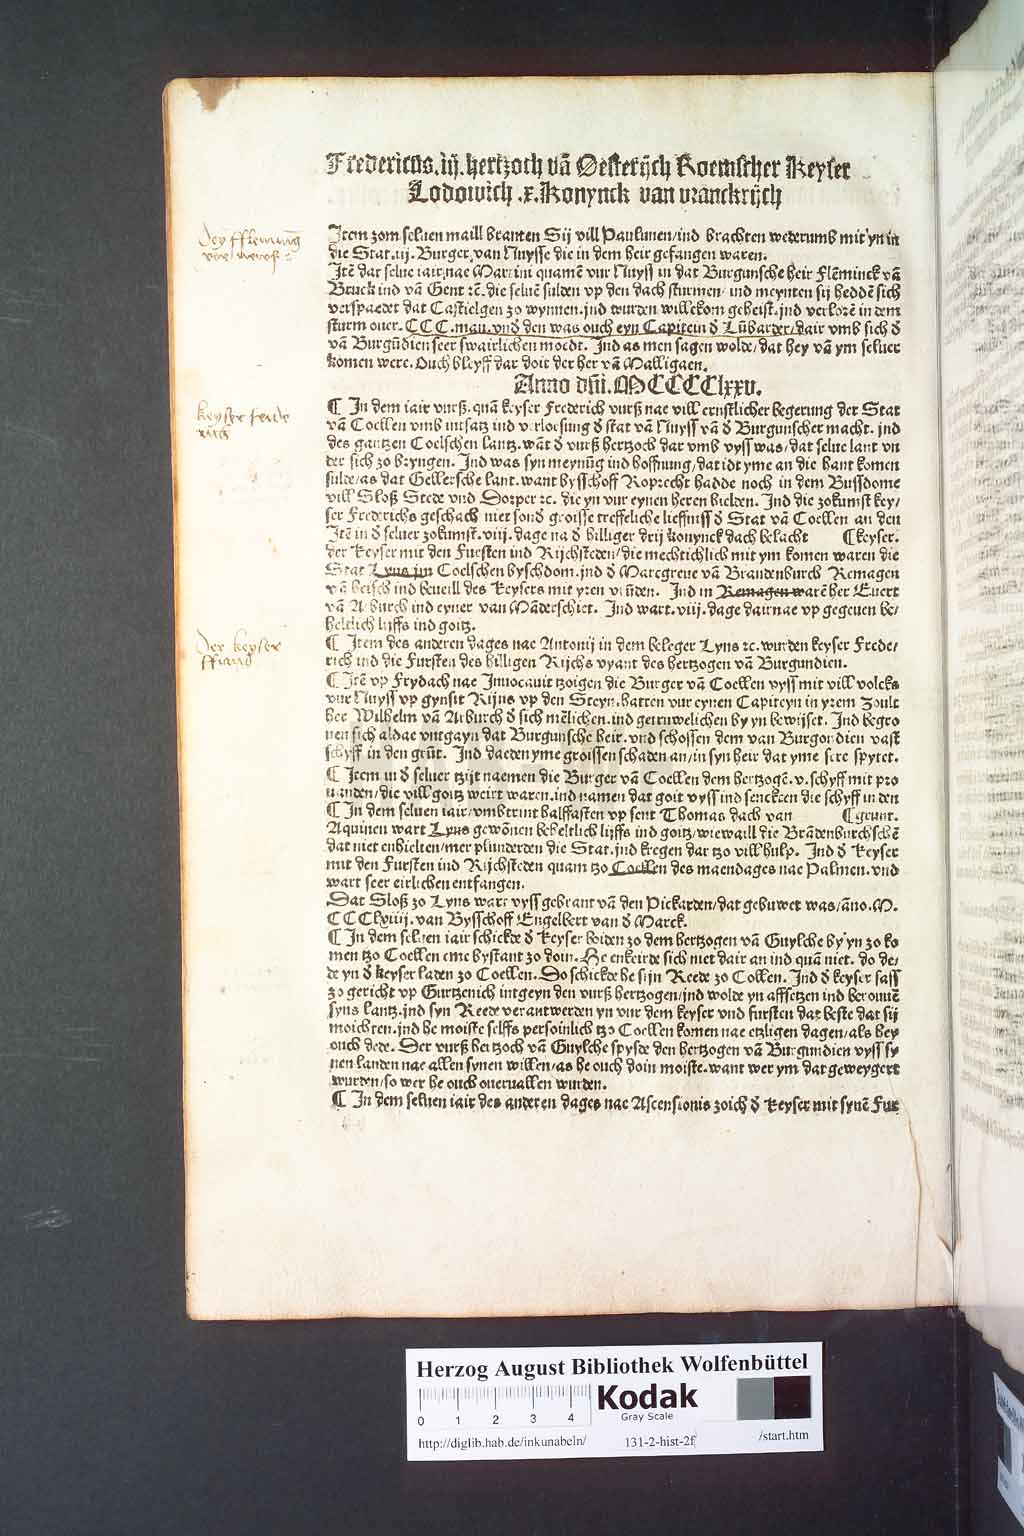 Fredericus .iij. hertzoch vā Oesterijch Roemscher Keyser
Lodowich .x. Konynck van vranckrijch
Item zom seluen maill branten Sij vill Pauluner/ind brachten wederumb mit yn in
die Stat .iij. Burger van Nuysse die in dem heir gefangen waren.
Itē dat selue iair nae Martini quamē vur Nuyss in dat Burgunsche heir Flēminck vā
Bruck ind vā Gent ꝛc. die seluē sulden vp den dach sturmen/ ind meynten sij heddē sich
verspaedet dat Castielgen zo wynnen. jnd wurden willekom geheist. jnd verlorē in dem
sturm ouer. CCC. man. vnd den was ouch eyn Capitein đ Lūbarder/dair vmb sich đ
vā Burgūdien seer swairlichen moedt. Ind as men sagen wolde/dat hey vā ym seluer
komen were. Ouch bleyff dar doit der her vā Malligaen.
Anno dñi. MCCCClxxv.
¶ In dem iair vurß. quā keyser Frederich vurß nae vill ernstlicher begerung der Stat
vā Coellen vmb intsatz ind verloesung đ stat vā Nuyss vā đ Burgunscher macht. jnd
des gantzen Coelschen lantz. wāt đ vurß hertzoch dar vmb vyss was/dat selue lant vn
der sich zo bryngen. Ind was syn meynūg ind hoffnung/dat idt yme an die hant komen
sulde/as dat Gellersche lant. want bysschoff Roprecht hadde noch in dem Bussdome
vill Sloß Stede vnd Dorper ꝛc. die yn vur eynen heren hielden. Ind die zokumst key/
ser Frederichs geschach niet sond groisse treffeliche lieffniss đ Stat vā Coellen an den
Itē in đ seluer zokumst. viij. dage na đ hilliger drij konynck dach belacht ¶keyser.
der Keyser mit den Fursten ind Rijchsteden/die mechtichlich mit ym komen waren die
Stat Lyns jm Coelschen byschdom. jnd đ Marcgreue vā Brandenburch Remagen
vā heisch ind beueill des Keysers mit yren vnden. Ind in Remagen warē her Euert
vā Arburch ind eyner van Māderschiet. Ind wart. viij. dage dairnae vp gegeuen be/
heltlich lijffs ind goitz.
¶ Item des anderen dages nae Antonij in dem beleger Lyns ꝛc. wurden keyser Frede/
rich ind die Fursten des hilligen Rijchs vyant des hertzogen vā Burgundien.
¶ Itē vp Frydach nae Inuocauit tzoigen die Burger vā Coellen vyss mit vill volcks
vur Nuyss vp gynsit Rijns vp den Steyn. hatten vur eynen Capiteyn in yrem Zoult
her Wilhelm vā Arburch đ sich mēlichen. ind getruwelichen by yn bewijset. Ind begro
uen sich aldae vntgayn dat Burgunsche heir. vnd schossen dem van Burgondien vast
schyff in den grūt. Ind daeden yme groissen schaden an/in syn heir dat yme sere spytet.
¶ Item in đ seluer tzijt naemen die Burger vā Coellen dem hertzogē. v. schyff mit pro
uanden/die vill goitz weirt waren. ind namen dat goit vyss ind senckten die schyff in den
¶ In dem seluen iair/vmbtrint halffasten vp sent Thomas dach van ¶grunt.
Aquinen wart Lyns gewōnen beheltlich lijffs ind goitz/wiewaill die Brādenburchschē
dat niet enhielten/mer plunderden die Stat. jnd kregen dar tzo vill hulp. Ind đ Keyser
mit den Fursten ind Rijchsteden quam tzo Coellen des maendages nae Palmen. vnd
wart seer eirlichen entfangen.
Dat Sloß zo Lyns wart vyss gebrant vā den Pickarden/dat gebuwet was/āno. M.
CCClxiiij. van Bysschoff Engelbert van đ Marck.
¶ In dem seluen iair schickde đ Keyser boiden zo dem hertzogen vā Guylche by yn zo ko
men tzo Coellen eme bystant zo doin. He enkeirde sich niet dair an ind quā niet. do de/
de yn đ keyser laden zo Coellen. Do schickde he sijn Reede zo Collen. Ind đ keyser sass
zo gericht vp Gurtzenich intgeyn den vurß hertzogen/jnd wolde yn affsetzen ind berouuē
syns lantz. jnd syn Reede verantwerden yn vur dem keyser vnd fursten dat beste dat sij
moichten. jnd he moiste selffs persoinlich tzo Coellen komen nae etzligen dagen/als hey
ouch dede. Der vurß hertzoch vā Guylche spysde den hertzogen vā Burgundien vyss sy
nen landen nae allen synen willen/as he ouch doin moiste. want wer ym dat geweygert
wurden/so wer he ouch oueruallen wurden.
¶ In dem seluen iair des anderen dages nae Ascensionis zoich đ Keyser mit synē Fur
Dey fflemung
keyser
Der keyser
Herzog August Bibliothek Wolfenbüttel
0 1 2 3 4
Kodak
Gray Scale
http://diglib.hab.de/inkunabeln/ 131-2-hist-2f /start.htm